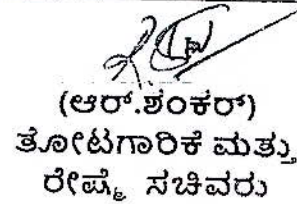 (ಆರ್.ಶಂಕರ್)
ತೋಟಗಾರಿಕೆ ಮತ್ತು
ರೇಷ್ಮೆ ಸಚಿವರು